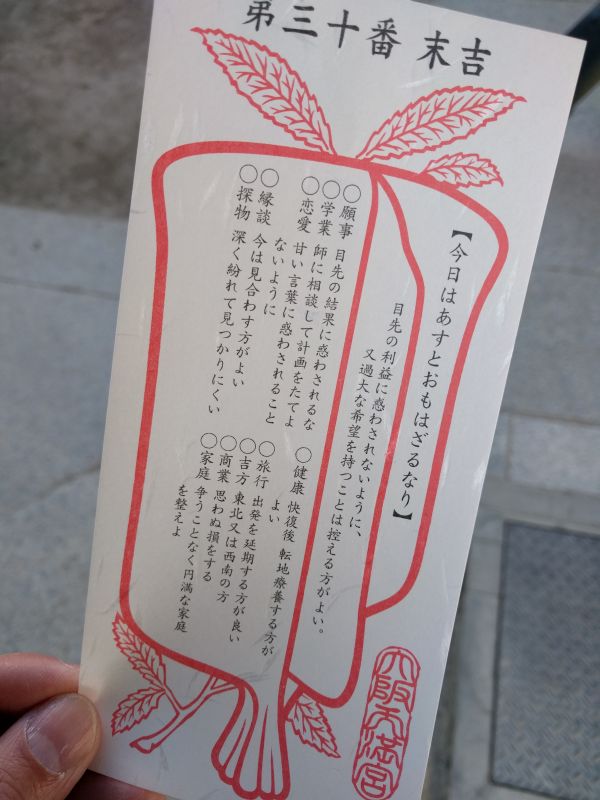 第三十番 末吉
【今日はあすとおもはざるなり】
目先の利益に惑わされないように、
又過大な希望を持つことは控える方がよい。
○願事 目先の結果に惑わされるな
○学業 師に相談して計画をたてよ
○恋愛 甘い言葉に惑わされること
ないように
○縁談 今は見合わす方がよい
○探物 深く紛れて見つかりにくい
○健康 快復後 転地療養する方が
よい
○旅行 出発を延期する方が良い
○吉方 東北又は西南の方
○商業 思わぬ損をする
○家庭 争うことなく円満な家庭
を整えよ
大阪天満宮